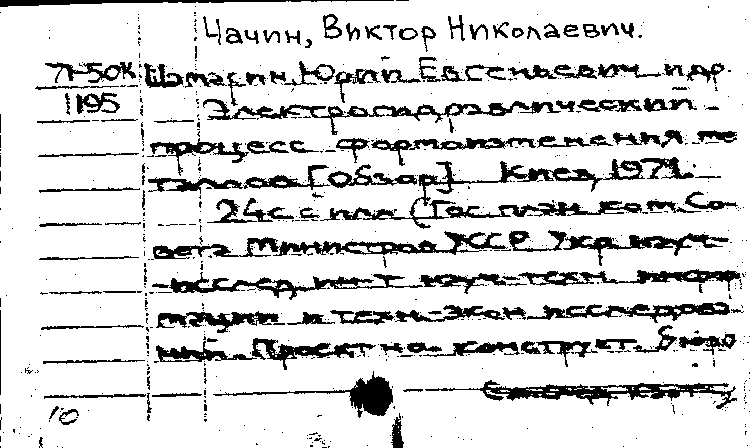 Чачин, Виктор Николаевич.
71-50К Шамарин, Юрий Евгеньевич и др.
1195 Электрогидравлический
процесс формоизменения ме
таллов [Обзор] Киев, 1971.
24с с илл (Госплан. ком. Со-
вета Министров УССР Укр науч-
-исслед. ин-т науч.-техн. инфор
мации и техн.-экон исследова-
ний. Проектно-конструкт. бюро
10